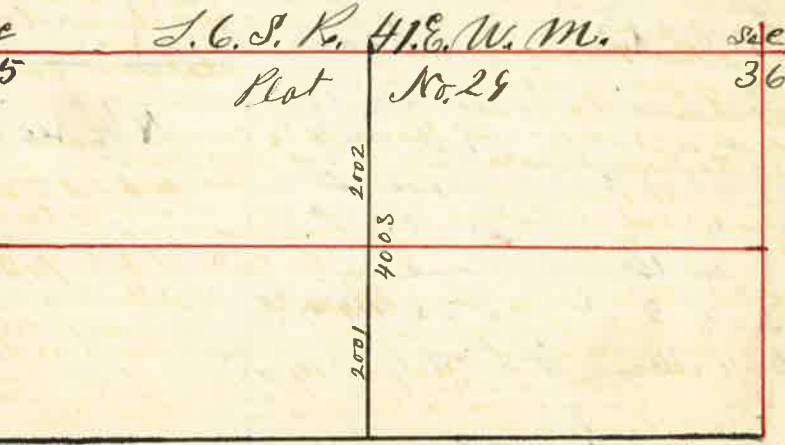 T. 6. S. R. 41. E. W. M.
Sec
5
36
Plat No. 29
2002
4003
2001